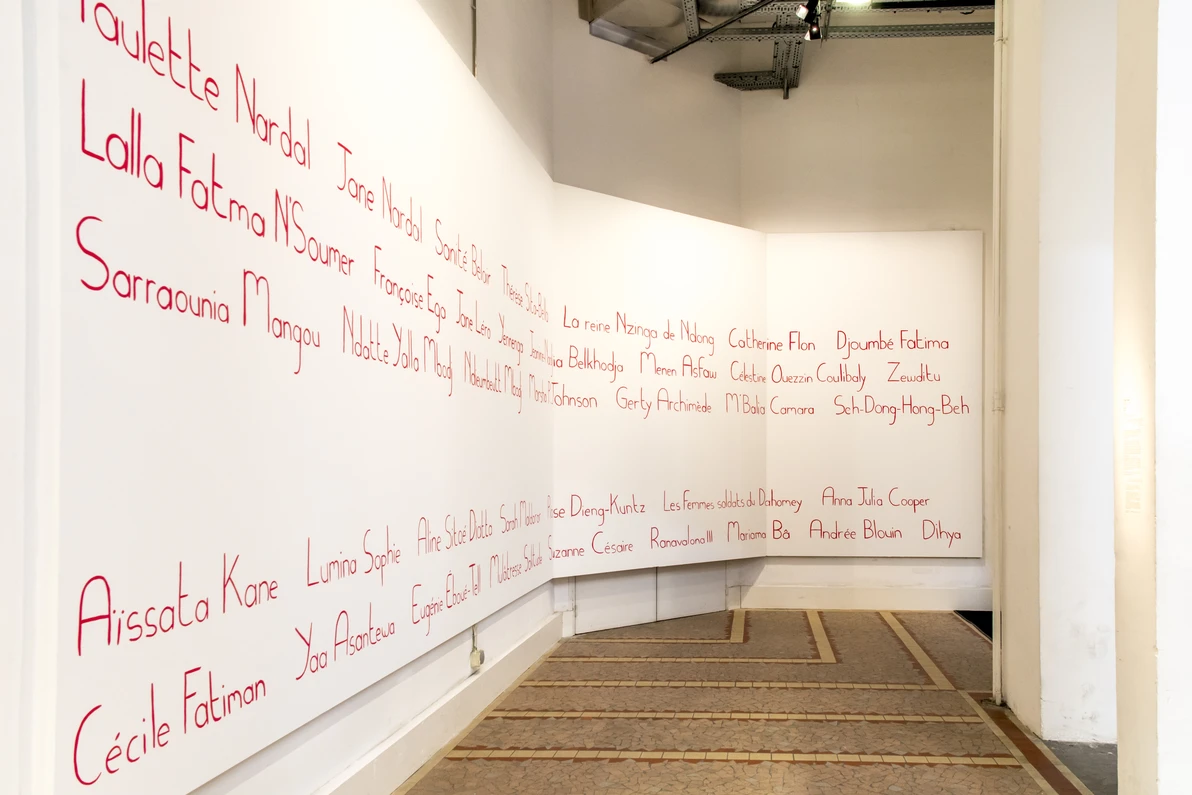 Paulette Nardal Jane Nardal Sanité Belair Thérèse Sita-Bella La reine Nzinga de Ndong Catherine Flon Djoumbé Fatima
Lalla Fatma N'Soumer Françoise Ega Jane Léro Yennenga Belkhodja Menen Asfaw Célestine Ouezzin Coulibaly Zewditu
Sarraounia Mangou Ndatte Yalla Mbodj Ndeumbeutt Mbodj Marsha P. Johnson Gerty Archimède M'Balia Camara Seh-Dong-Hong-Beh
Aïssata Kane Lumina Sophie Aline Sitoé Diatta Sarah Maldoror Rose Dieng-Kuntz Les Femmes soldats du Dahomey Anna Julia Cooper
Cécile Fatiman Yaa Asantewa Eugénie Éboué-Tell Mulâtresse Solitude Suzanne Césaire Ranavalona III Mariama Bâ Andrée Blouin Dihya